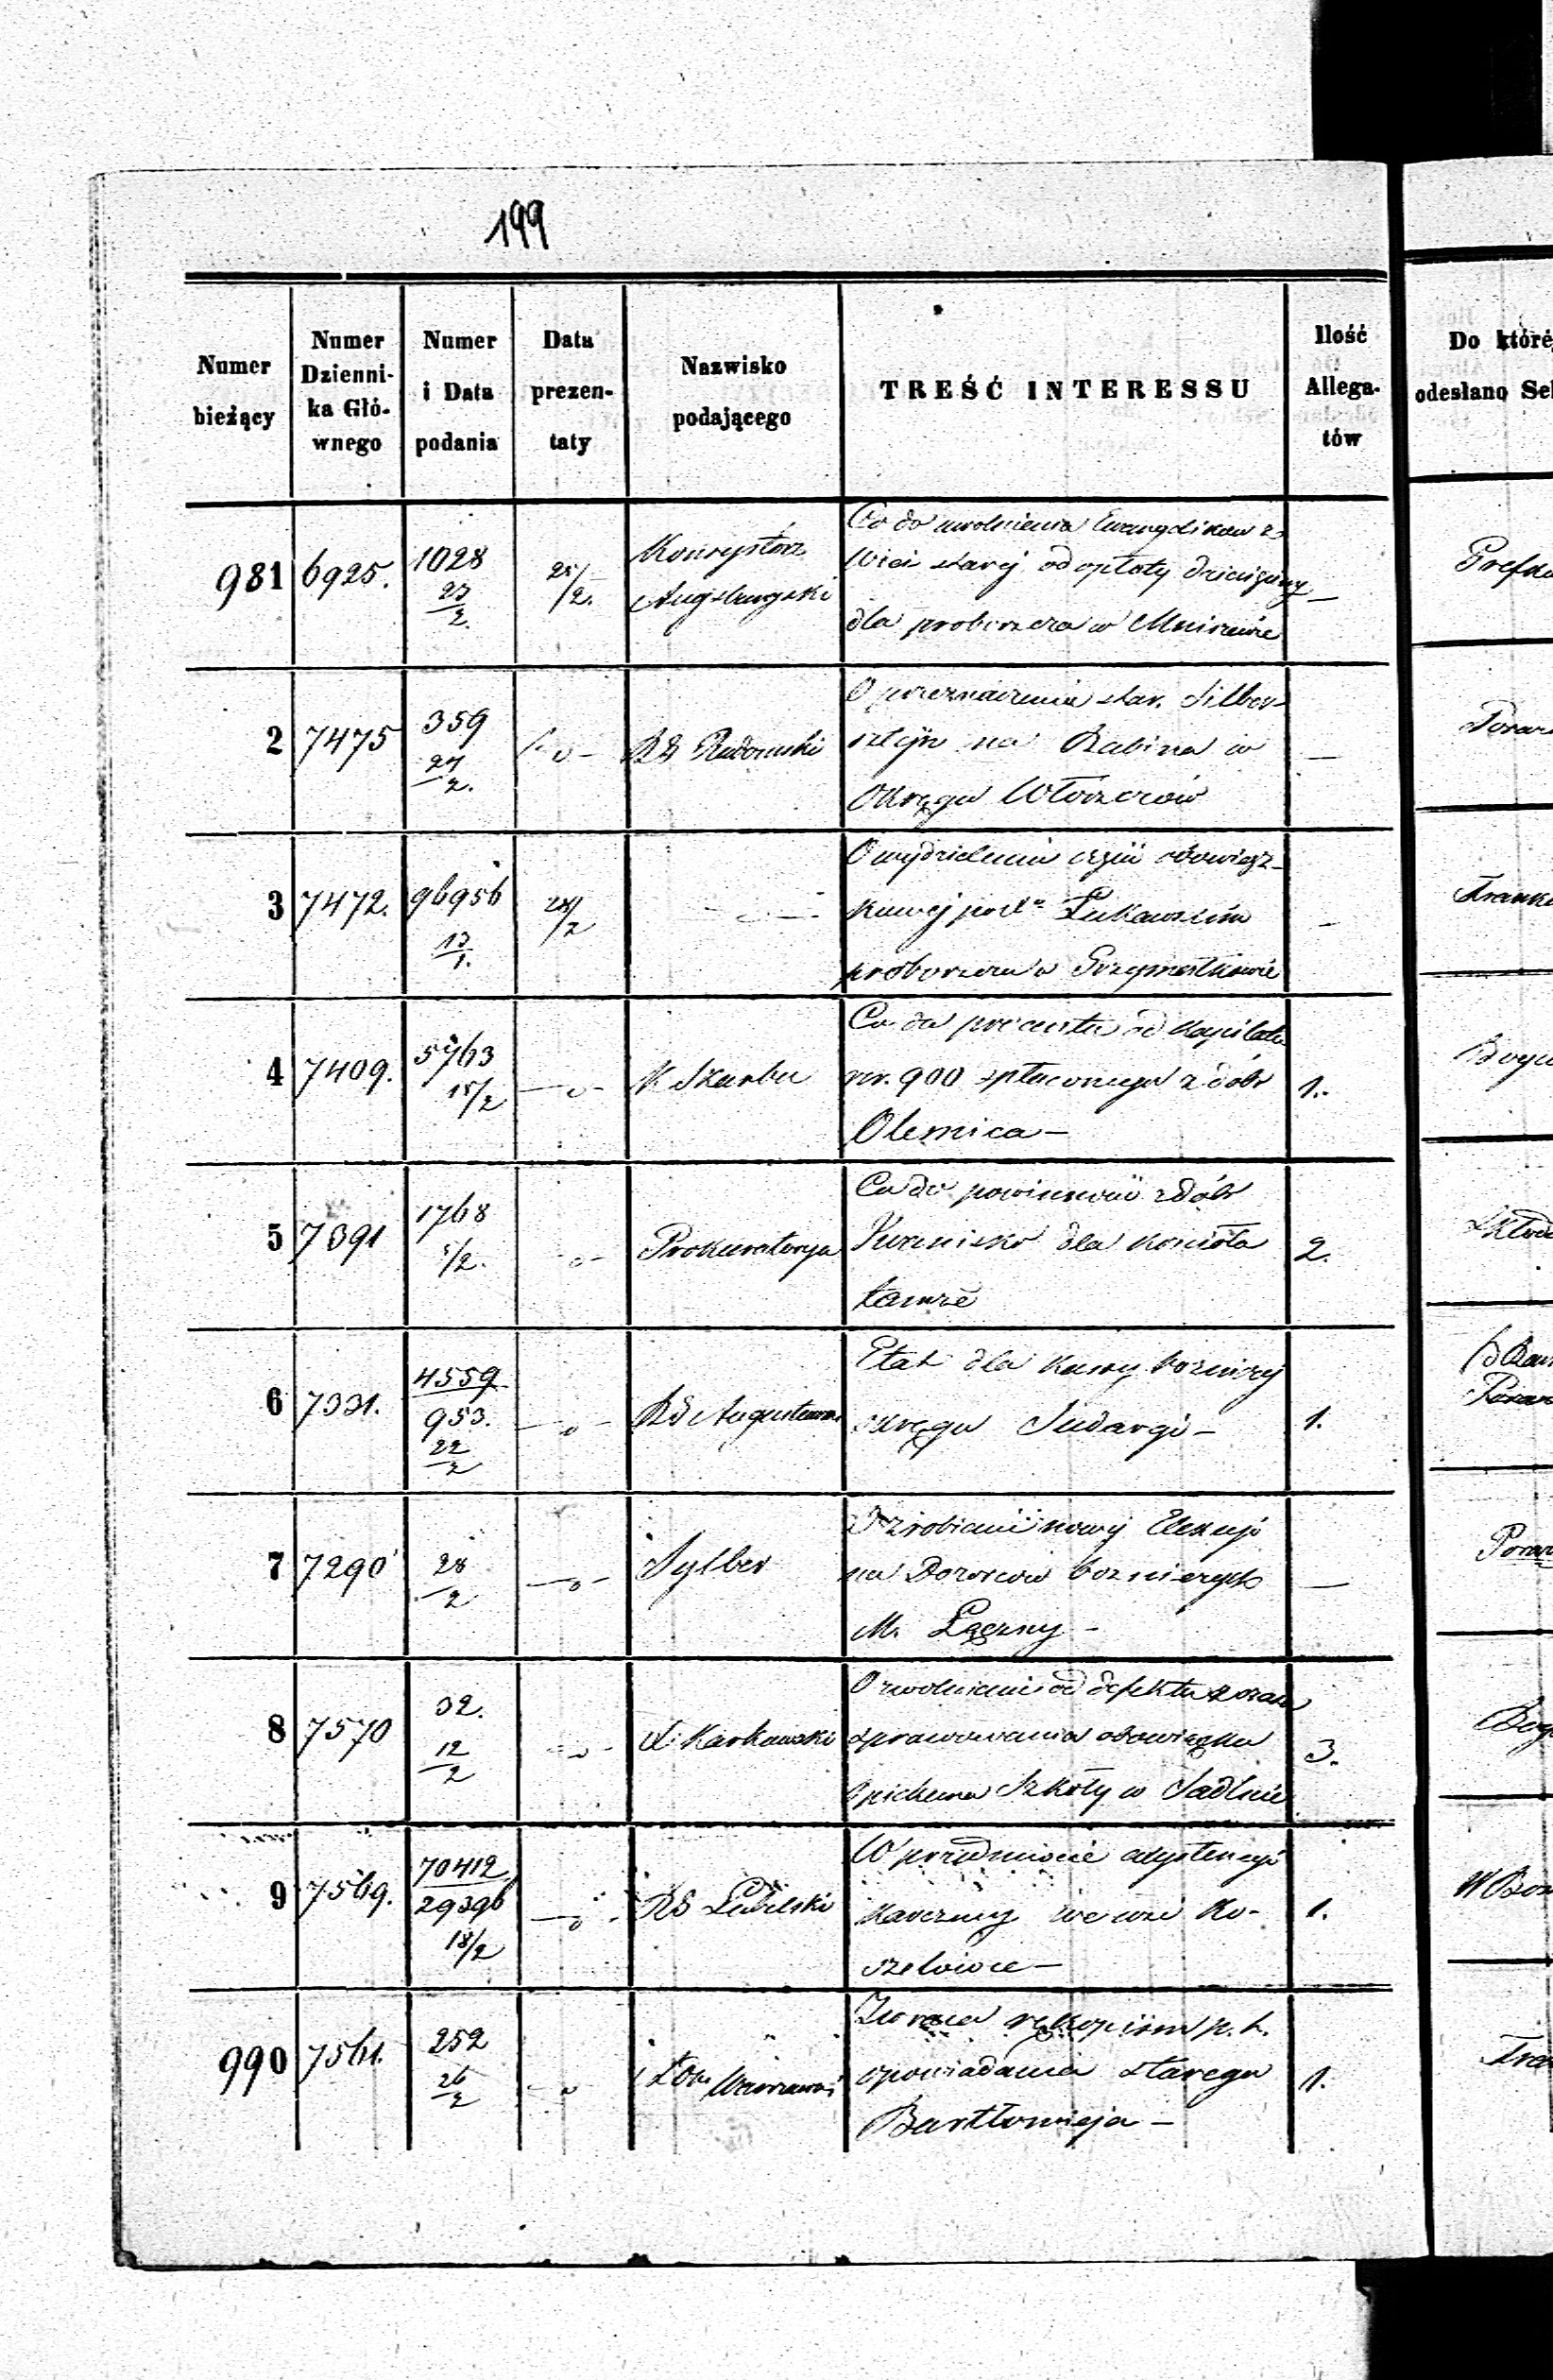 199
Numer bieżący
Numer Dzienni-ka Głó-wnego
Numer i Data podania
Data prezen-taty
Nazwisko podającego
TREŚĆ INTERESSU
Ilość Allega-tów
Do które
odesłano Se
981 6925. 1028 27/2. 25/2. Konsystorz Augsburgski
Co do uwolnienia Ewangelikow z
Wsi starej od opłaty dziesięciny —
dla proboszcza w Mniszewie
2 7475 359 27/2. — o — RG Radomski
O przeznaczenie star. Silber-
sztejn na Rabina w —
Okręgu Włoszczów
3 7472. 96956 13/1. 28/2
O wydzielenie części obowiąz-
kowej Łukawskim —
proboszcza w Grzymałkowie
4 7409. 5763 15/2 — o — K Skarbu
Co do procentu od Kapitału
rsr. 900 spłaconego z dóbr 1.
Olesnica —
5 7391 1768 5/2. — o — Prokuratorya
Co do powinności z dóbr
dla kościoła 2.
tamże
6 7331. 4559 953. 22/2 — o — RG Augustows.
Etat dla kassy bożniczej
okręgu Sudargi — 1.
7 7290 28/2 — o — Sylber
O zrobienie nowej Elekcyi
na Dozorców bożniczych —
M. Łęczny —
8 7570 32. 12/2 — o — Karkowski
O uwolnienie od defektu z czasu
sprawowania obowiązku 3.
Opiekuna Szkoły w Sadlnie
9 7569. 70412 29396 18/2 — o — RG Lubelski
W przedmiocie exystencyi
karczmy we wsi Ko- 1.
szelowce —
990 7561. 252 26/2 — o Warszaws
Zwraca rękopism p. t.
opowiadania starego 1.
Bartłomieja —